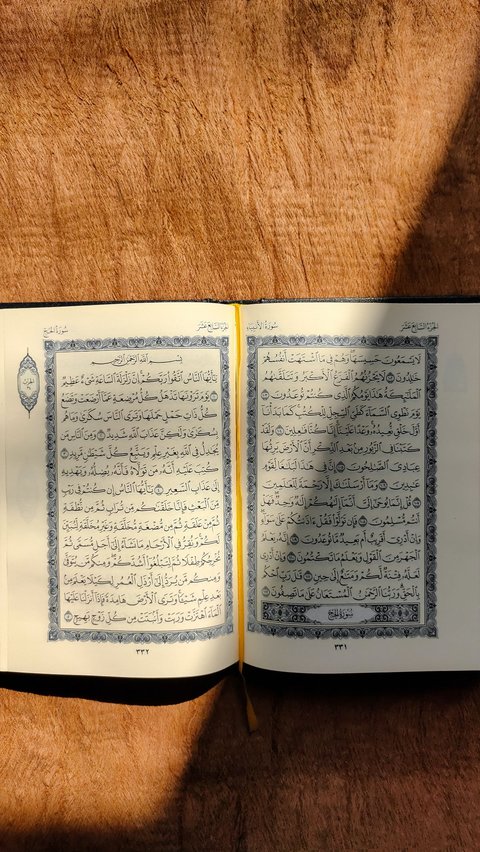 الجزء السابع عشر سورة الأنبياء
لَا يَسْمَعُونَ حَسِيسَهَا وَهُمْ فِي مَا ٱشْتَهَتْ أَنفُسُهُمْ
خَٰلِدُونَ ١٠٢ لَا يَحْزُنُهُمُ ٱلْفَزَعُ ٱلْأَكْبَرُ وَتَتَلَقَّىٰهُمُ
ٱلْمَلَٰٓئِكَةُ هَٰذَا يَوْمُكُمُ ٱلَّذِي كُنتُمْ تُوعَدُونَ ١٠٣
يَوْمَ نَطْوِي ٱلسَّمَآءَ كَطَيِّ ٱلسِّجِلِّ لِلْكُتُبِ كَمَا بَدَأْنَآ
أَوَّلَ خَلْقٍ نُّعِيدُهُۥ وَعْدًا عَلَيْنَآ إِنَّا كُنَّا فَٰعِلِينَ ١٠٤ وَلَقَدْ
كَتَبْنَا فِي ٱلزَّبُورِ مِنۢ بَعْدِ ٱلذِّكْرِ أَنَّ ٱلْأَرْضَ يَرِثُهَا
عِبَادِيَ ٱلصَّٰلِحُونَ ١٠٥ إِنَّ فِي هَٰذَا لَبَلَٰغًا لِّقَوْمٍ
عَٰبِدِينَ ١٠٦ وَمَآ أَرْسَلْنَٰكَ إِلَّا رَحْمَةً لِّلْعَٰلَمِينَ
١٠٧ قُلْ إِنَّمَا يُوحَىٰٓ إِلَيَّ أَنَّمَآ إِلَٰهُكُمْ إِلَٰهٌ وَٰحِدٌ فَهَلْ
أَنتُم مُّسْلِمُونَ ١٠٨ فَإِن تَوَلَّوْا۟ فَقُلْ ءَاذَنتُكُمْ عَلَىٰ سَوَآءٍ
وَإِنْ أَدْرِيٓ أَقَرِيبٌ أَم بَعِيدٌ مَّا تُوعَدُونَ ١٠٩ إِنَّهُۥ يَعْلَمُ
ٱلْجَهْرَ مِنَ ٱلْقَوْلِ وَيَعْلَمُ مَا تَكْتُمُونَ ١١٠ وَإِنْ أَدْرِي
لَعَلَّهُۥ فِتْنَةٌ لَّكُمْ وَمَتَٰعٌ إِلَىٰ حِينٍ ١١١ قَٰلَ رَبِّ ٱحْكُم
بِٱلْحَقِّ وَرَبُّنَا ٱلرَّحْمَٰنُ ٱلْمُسْتَعَانُ عَلَىٰ مَا تَصِفُونَ ١١٢
سورة الحج
٣٣١
الجزء السابع عشر سورة الحج
بِسْمِ ٱللَّهِ ٱلرَّحْمَٰنِ ٱلرَّحِيمِ
يَٰٓأَيُّهَا ٱلنَّاسُ ٱتَّقُوا۟ رَبَّكُمْ إِنَّ زَلْزَلَةَ ٱلسَّاعَةِ شَيْءٌ عَظِيمٌ
١ يَوْمَ تَرَوْنَهَا تَذْهَلُ كُلُّ مُرْضِعَةٍ عَمَّآ أَرْضَعَتْ وَتَضَعُ
كُلُّ ذَاتِ حَمْلٍ حَمْلَهَا وَتَرَى ٱلنَّاسَ سُكَٰرَىٰ وَمَا هُم
بِسُكَٰرَىٰ وَلَٰكِنَّ عَذَابَ ٱللَّهِ شَدِيدٌ ٢ وَمِنَ ٱلنَّاسِ مَن
يُجَٰدِلُ فِي ٱللَّهِ بِغَيْرِ عِلْمٍ وَيَتَّبِعُ كُلَّ شَيْطَٰنٍ مَّرِيدٍ ٣
كُتِبَ عَلَيْهِ أَنَّهُۥ مَن تَوَلَّاهُ فَأَنَّهُۥ يُضِلُّهُۥ وَيَهْدِيهِ
إِلَىٰ عَذَابِ ٱلسَّعِيرِ ٤ يَٰٓأَيُّهَا ٱلنَّاسُ إِن كُنتُمْ فِي رَيْبٍ
مِّنَ ٱلْبَعْثِ فَإِنَّا خَلَقْنَٰكُم مِّن تُرَابٍ ثُمَّ مِن نُّطْفَةٍ
ثُمَّ مِنْ عَلَقَةٍ ثُمَّ مِن مُّضْغَةٍ مُّخَلَّقَةٍ وَغَيْرِ مُخَلَّقَةٍ لِّنُبَيِّنَ
لَكُمْ وَنُقِرُّ فِي ٱلْأَرْحَامِ مَا نَشَآءُ إِلَىٰٓ أَجَلٍ مُّسَمًّى ثُمَّ
نُخْرِجُكُمْ طِفْلًا ثُمَّ لِتَبْلُغُوٓا۟ أَشُدَّكُمْ وَمِنكُم مَّن يُتَوَفَّىٰ
وَمِنكُم مَّن يُرَدُّ إِلَىٰٓ أَرْذَلِ ٱلْعُمُرِ لِكَيْلَا يَعْلَمَ مِنۢ
بَعْدِ عِلْمٍ شَيْـًٔا وَتَرَى ٱلْأَرْضَ هَامِدَةً فَإِذَآ أَنزَلْنَا عَلَيْهَا
ٱلْمَآءَ ٱهْتَزَّتْ وَرَبَتْ وَأَنۢبَتَتْ مِن كُلِّ زَوْجٍۭ بَهِيجٍ ٥
٣٣٢